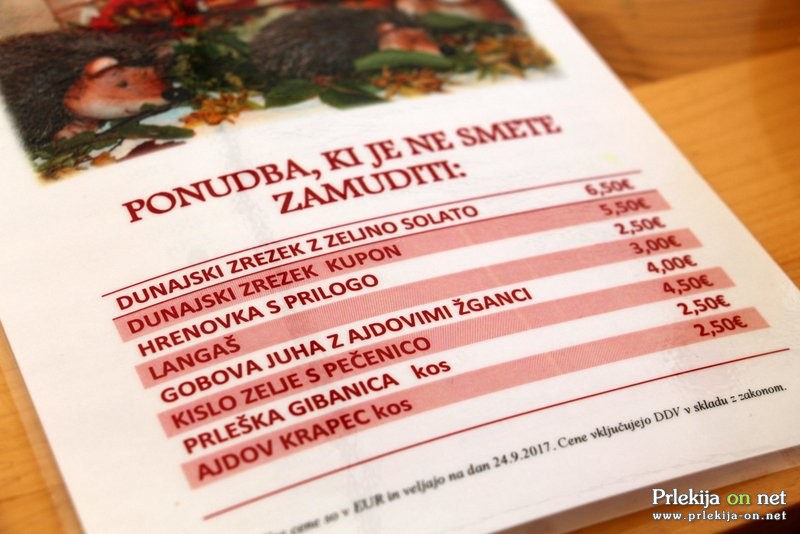 PONUDBA, KI JE NE SMETE
ZAMUDITI:
DUNAJSKI ZREZEK Z ZELJNO SOLATO 6,50€
DUNAJSKI ZREZEK KUPON 5,50€
HRENOVKA S PRILOGO 2,50€
LANGAŠ 3,00€
GOBOVA JUHA Z AJDOVIMI ŽGANCI 4,00€
KISLO ZELJE S PEČENICO 4,50€
PRLEŠKA GIBANICA kos 2,50€
AJDOV KRAPEC kos 2,50€
cene so v EUR in veljajo na dan 24.9.2017. Cene vključujejo DDV v skladu z zakonom.
Prlekija on net
www.prlekija-on.net